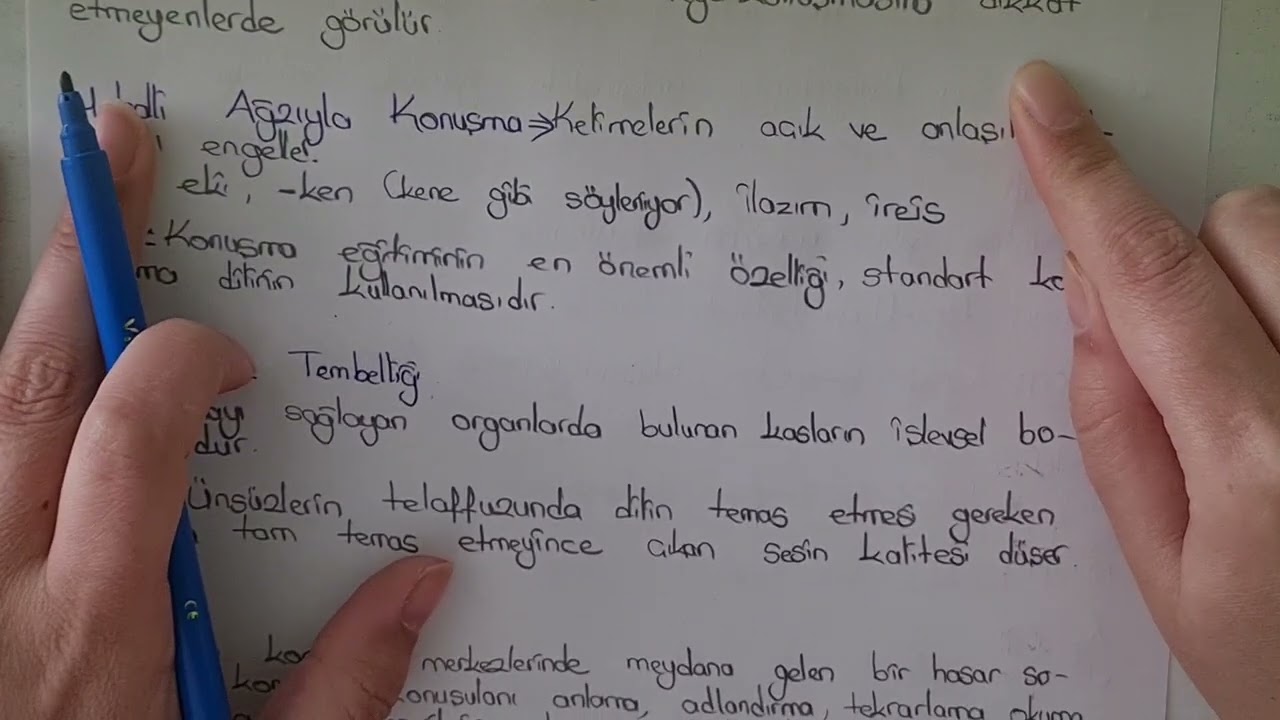 etmeyenlerde görülür.
Ağzıyla Konuşma ⇒ Kelimelerin açık ve
engeller.
eki, -ken (kene gibi söyleniyor), ilazım, ireis
: Konuşma eğitiminin en önemli özelliği, standart
dilinin kullanılmasıdır.
Tembelliği
sağlayan organlarda bulunan kasların işlevsel bo-
dur.
Ünsüzlerin telaffuzunda dilin temas etmesi gereken
tam temas etmeyince çıkan sesin kalitesi düşer.
merkezlerinde meydana gelen bir hasar so-
anlama, adlandırma, tekrarlama okuma